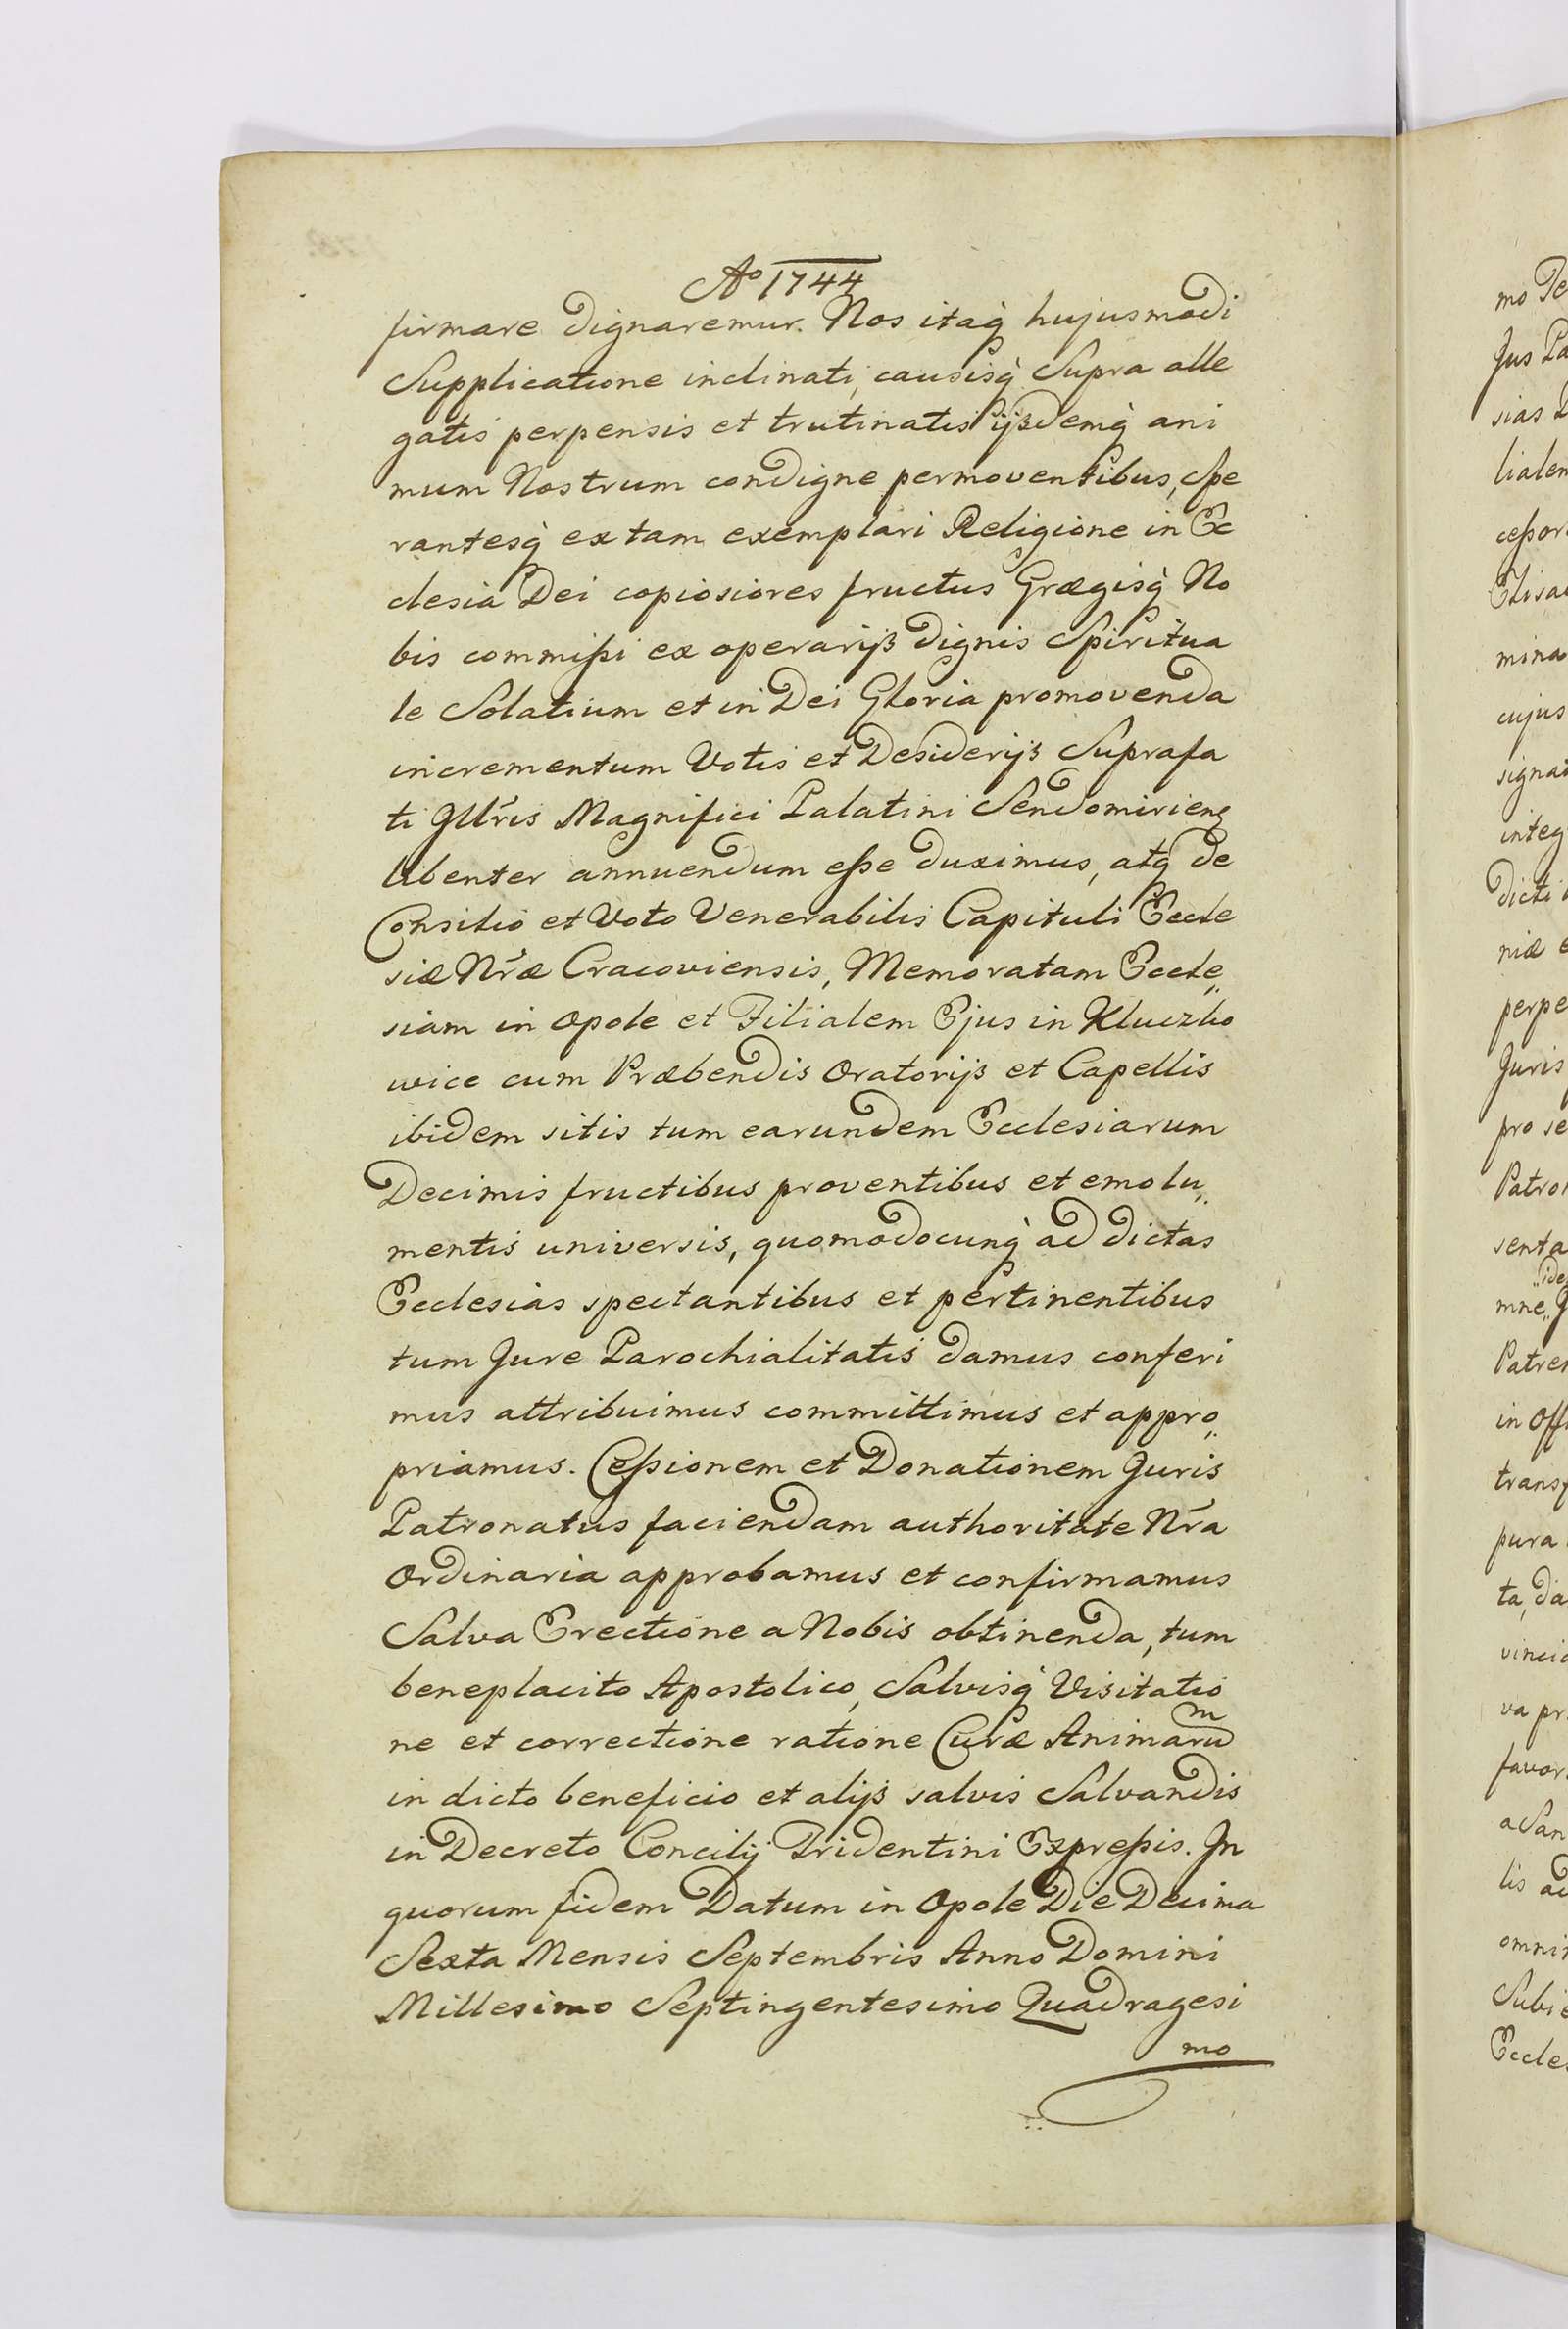 Ao 1744
firmare dignaremur. Nos itaq̀ hujusmodi
Supplicatione inclinati, causisq̀ Supra alle
gatis perpensis et trutinatis ijsdemq̀ ani
mum Nostrum condigne permoventibus, Spe
rantesq̀ ex tam exemplari Religione in Ec
clesia Dei copiosiores fructus Grægisq̀ No
bis commißi ex operarijs dignis Spiritua
le Solatium et in Dei Gloria promovenda
incrementum Votis et Desiderijs Suprafa
ti Jllr̃is Magnifici Palatini Sendomirienȝ
libenter annuendum eße duximus, atq̀ de
Consilio et Voto Venerabilis Capituli Eccle
siæ Nr̃æ Cracoviensis, Memoratam Eccle„
siam in Opole et Filialem Ejus in Kluczko
wice cum Præbendis Oratorijs et Capellis
ibidem sitis tum earundem Ecclesiarum
Decimis fructibus proventibus et emolu„
mentis universis, quomodocunq̀ ad dictas
Ecclesias spectantibus et pertinentibus
tum Jure Parochialitatis damus conferi
mus attribuimus committimus et appro„
priamus. Ceßionem et Donationem Juris
Patronatus faciendam authoritate Nr̃a
Ordinaria approbamus et confirmamus
Salva Erectione a Nobis obtinenda, tum
beneplacito Apostolico, Salvisq̀ Visitatio
ne et correctione ratione Curæ Animarum
in dicto beneficio et alijs salvis Salvandis
in Decreto Concilij Tridentini Expreßis. Jn
quorum fidem Datum in Opole Die Decima
Sexta Mensis Septembris Anno Domini
Millesimo Septingentesimo Quadragesi
mo
mo Te
Jus Pa
sias
lialem
ceßor
Elisa
mina
cujus
signa
integ
dicti
niæ e
perpe
Juris
pro se
Patro
senta
„ide
mne„ J
Patre
in Off
transf
pura
ta, da
vinci
va pr
favor
a San
lis ad
omni
Subi
Eccle